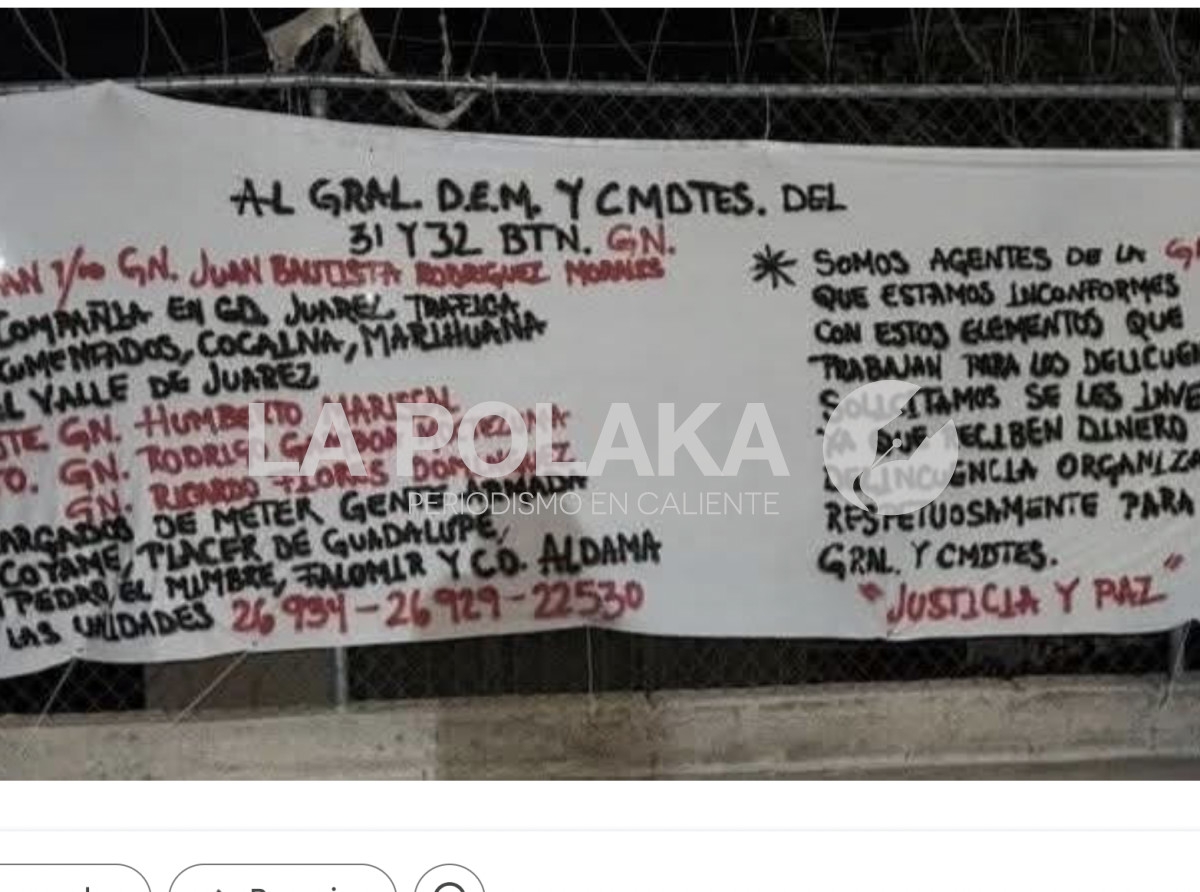 AL GRAL. D.E.M. Y CMDTES. DEL
31 Y 32 BTN. GN.
AN 1/oo GN. JUAN BAUTISTA RODRIGUEZ MORALES
COMPAÑIA EN CD. JUAREZ TRAFICA
CUMENTADOS, COCAINA, MARIHUANA
L VALLE DE JUAREZ
TE GN. HUMBERTO
TO. GN. RODRIGO
GN. RICARDO FLORES DOMINGUEZ
ARGADOS DE METER GENTE ARMADA
COYAME, PLACER DE GUADALUPE,
PEDRO, EL MIMBRE, FALOMIR Y CD. ALDAMA
LAS UNIDADES 26934-26929-22530
* SOMOS AGENTES DE LA G
QUE ESTAMOS INCONFORMES
CON ESTOS ELEMENTOS QUE
TRABAJAN PARA LOS DELICUE
SOLICITAMOS SE LES INVE
YA QUE RECIBEN DINERO
DELINCUENCIA ORGANIZA
RESPETUOSAMENTE PARA
GRAL. Y CMDTES.
"JUSTICIA Y PAZ"
LA POLAKA
PERIODISMO EN CALIENTE